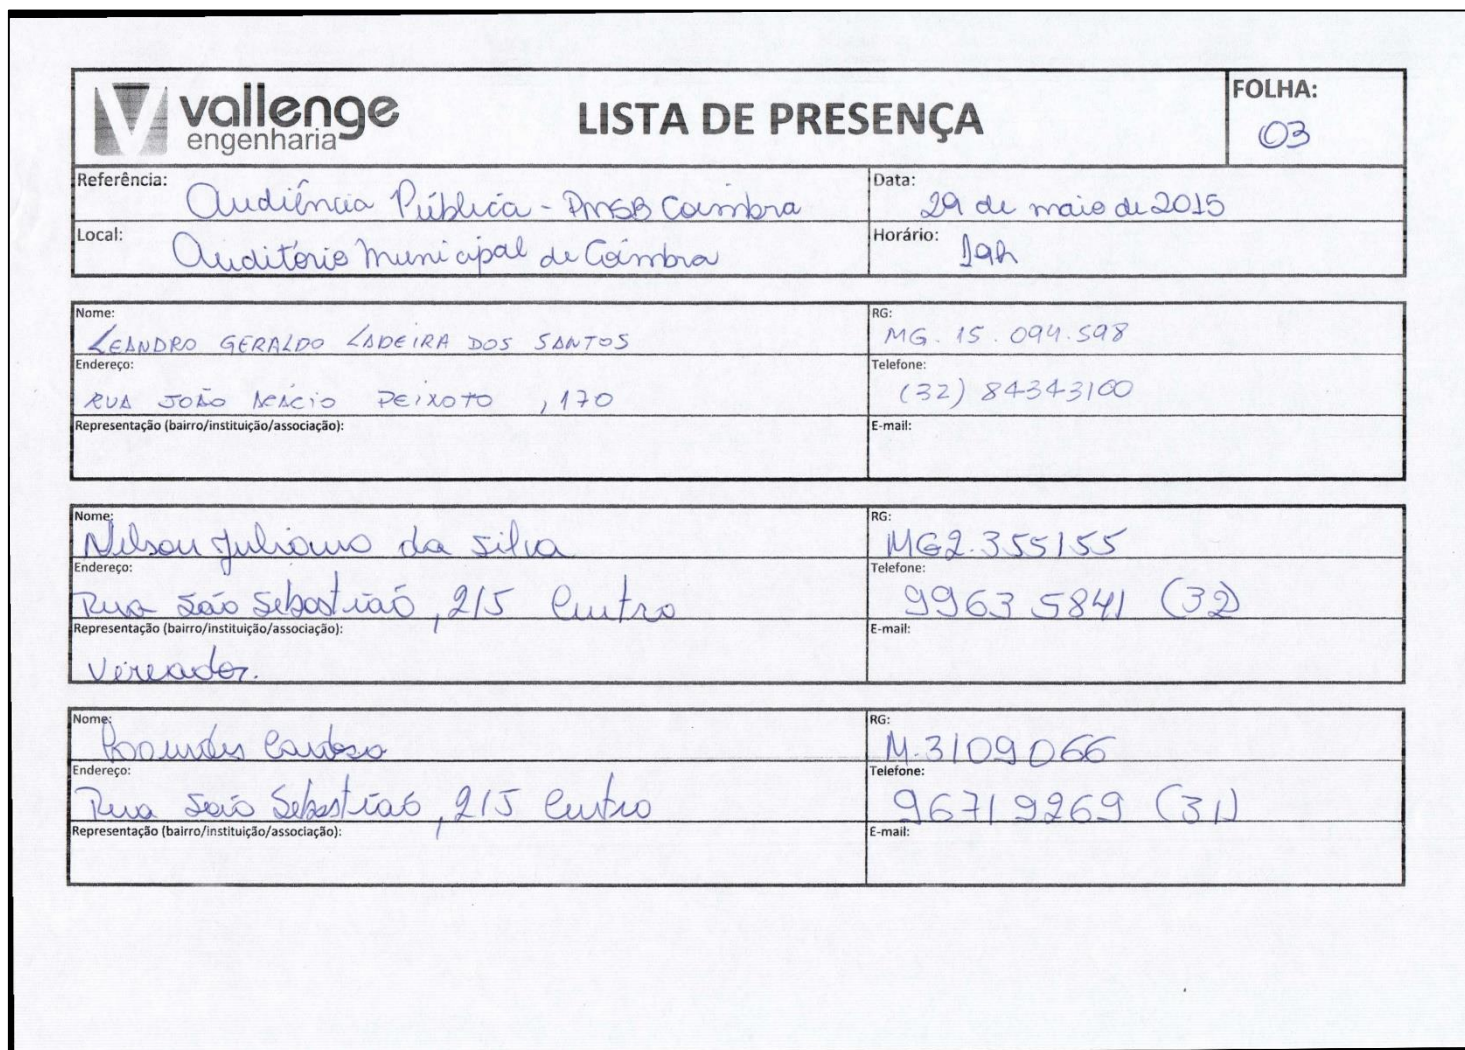 vallenge
engenharia
LISTA DE PRESENÇA
FOLHA:
03
Referência: Audiência Pública - PMSB Coimbra
Data: 29 de maio de 2015
Local: Auditório Municipal de Coimbra
Horário: 19h
Nome: LEANDRO GERALDO LADEIRA DOS SANTOS
RG: MG. 15. 094.598
Endereço: RUA JOÃO PEIXOTO , 170
Telefone: (32) 84343100
Representação (bairro/instituição/associação):
E-mail:
Nome: Nelson Juliano da Silva
RG: MG2.355155
Endereço: Rua São Sebastião, 215 Centro
Telefone: 9963 5841 (32)
Representação (bairro/instituição/associação): Vereador.
E-mail:
Nome: Cardoso
RG: M.3109066
Endereço: Rua São Sebastião, 215 Centro
Telefone: 96719269 (31)
Representação (bairro/instituição/associação):
E-mail: